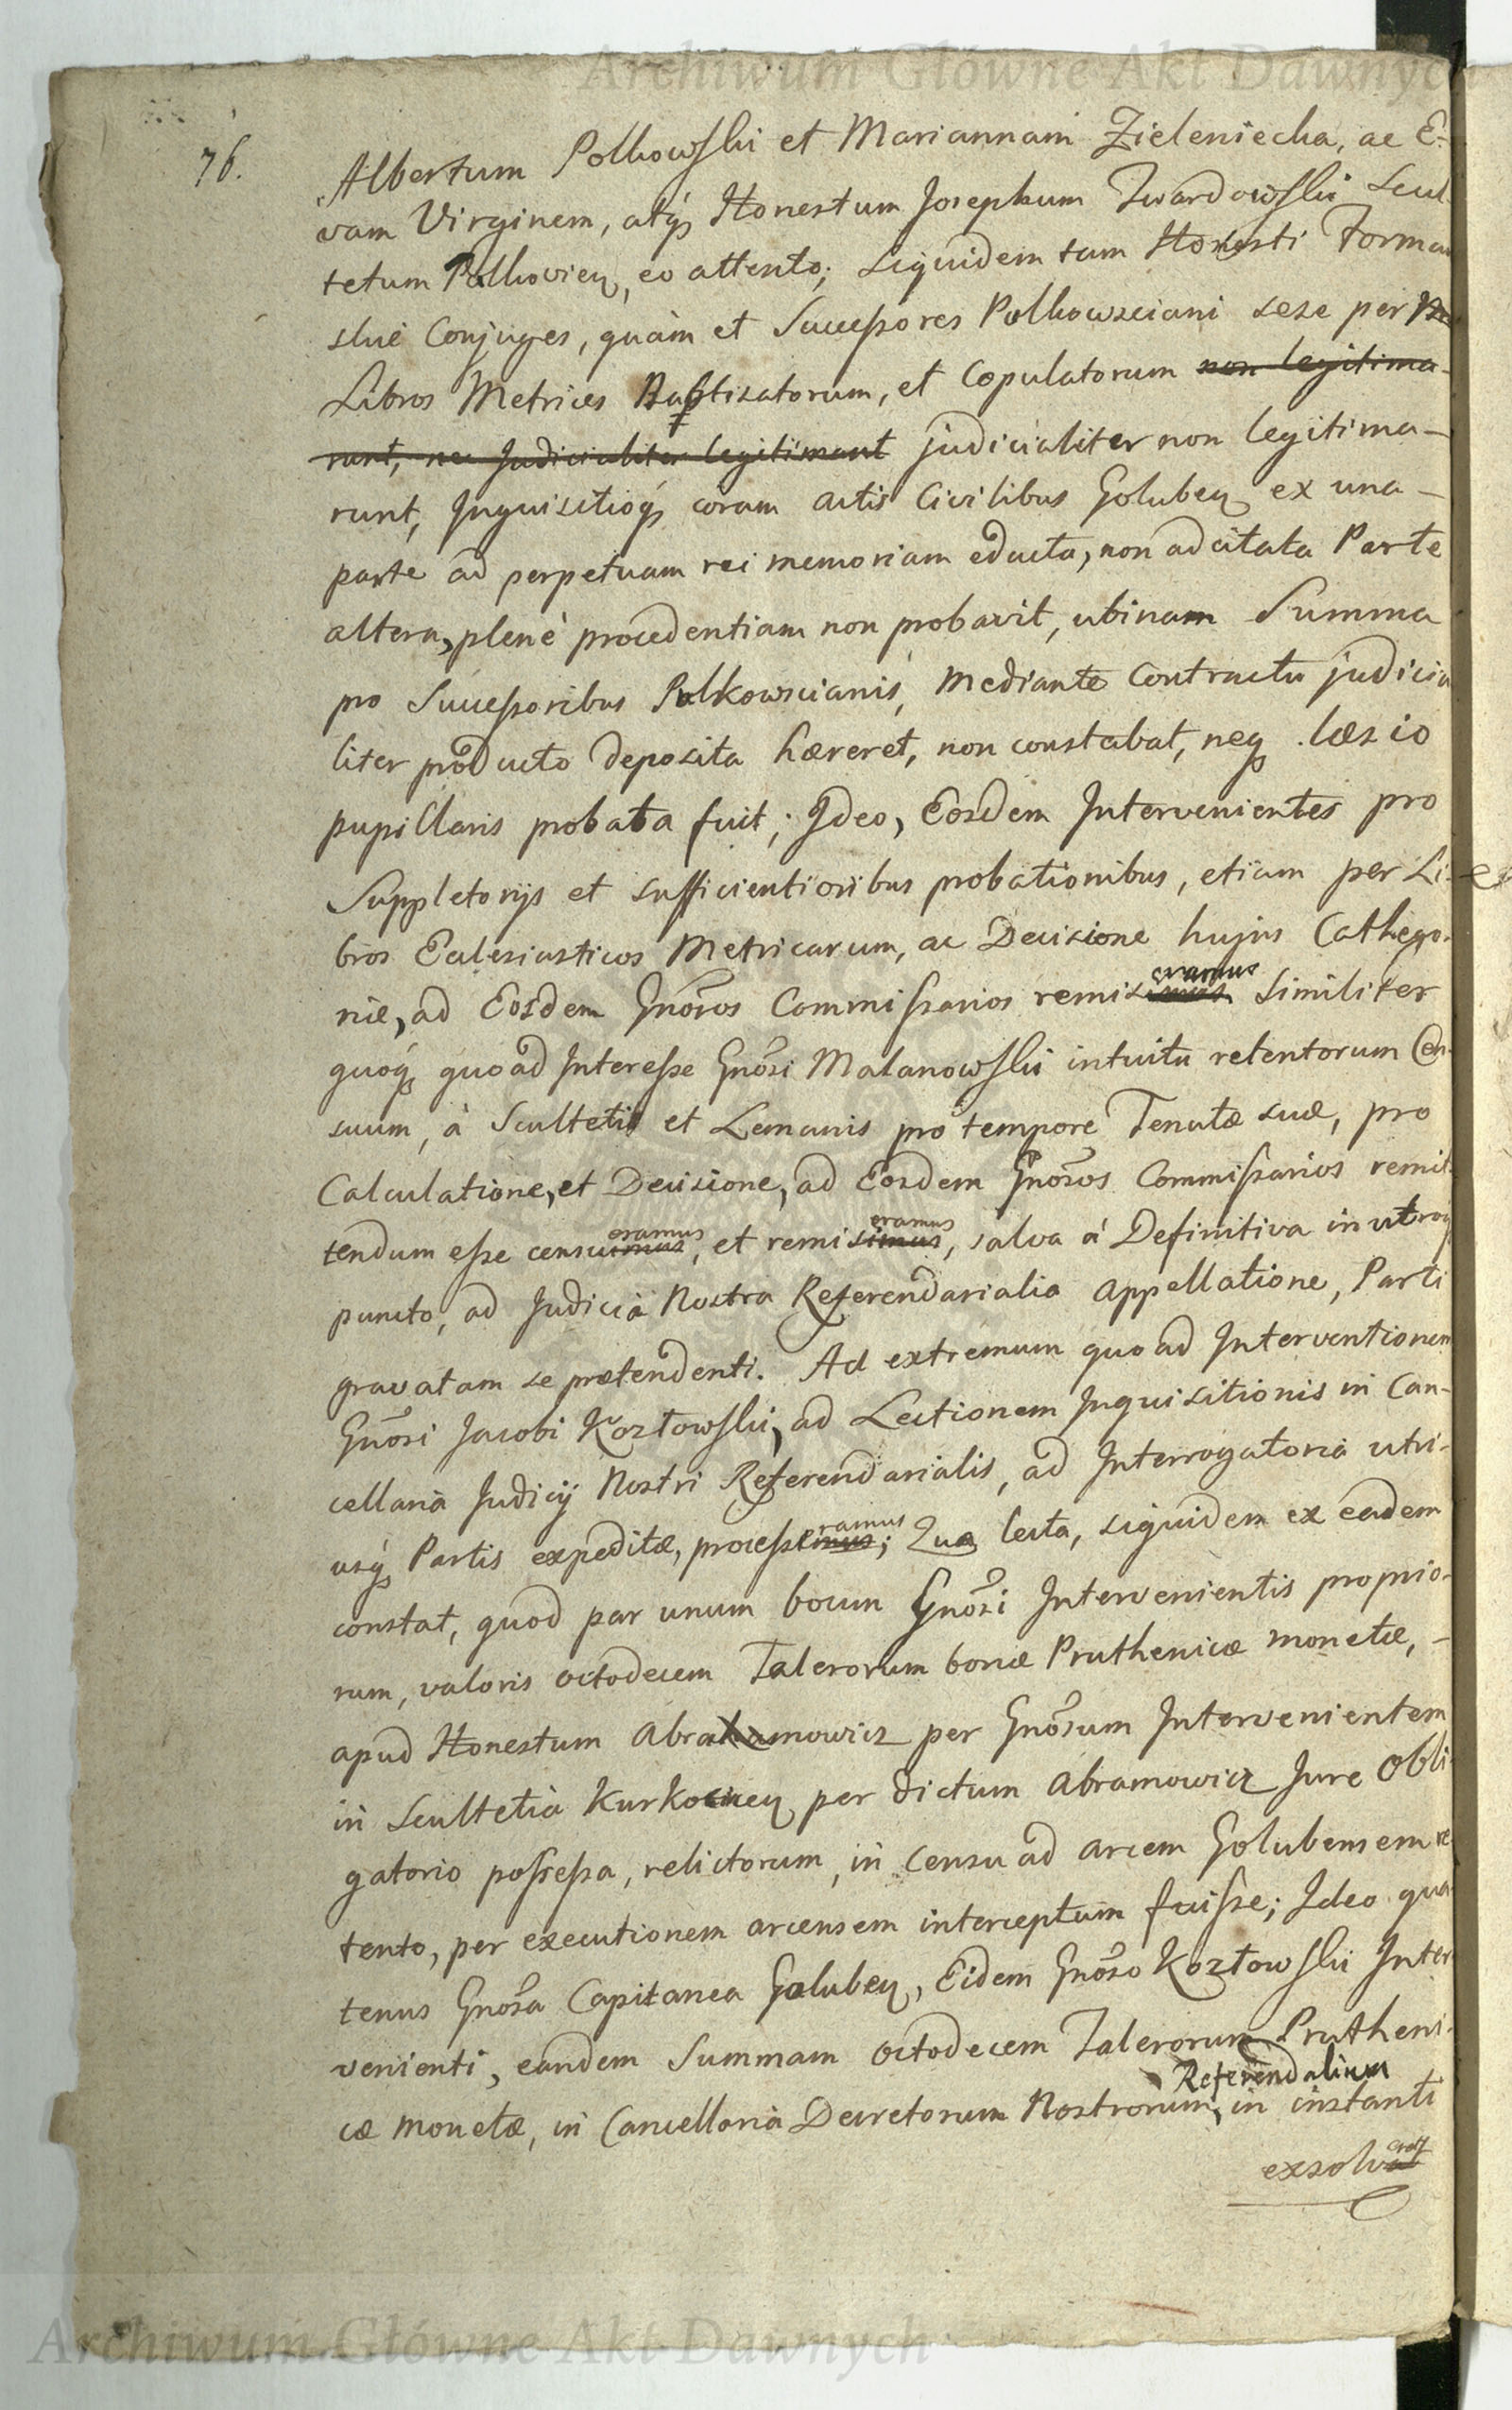 Archiwum Główne Akt Dawnych
76.
Albertum Polkowski et Mariannam Zieleniecka, ac E-
vam Virginem, atq́ Honestum Josephum Twardowski Scul-
tetum Polkovien, eo attento; siquidem tam Honesti Forman
skie Conjuges, quàm et Successores Polkowsciani sese per
Libros Metrices Baptisatorum, et Copulatorum non legitima-
runt, nec Judicialiter legitimant judicialiter non legitima-
runt, Inquisitioq́ coram actis Civilibus Goluben ex una
parte ad perpetuam rei memoriam educta, non adcitata Parte
altera, plenè procedentiam non probavit, ubinam Summa
pro Successoribus Polkowscianis, mediante Contractu judicia
liter producto deposita hæreret, non constabat, neq læsio
pupillaris probata fuit; Ideo, Eosdem Intervenientes pro
Suppletorijs et sufficientioribus probationibus, etiam per Li-
bros Ecclesiasticos Metricarum, ac Decisione hujus Cathego-
riæ, ad Eosdem Gnõsos Commissarios remis eramus similiter
quoq́ quoad Interesse Gnõsi Malanowski intuitu retentorum Cen-
suum, à Scultetis et Lemanis pro tempore Tenutæ suæ, pro
Calculatione, et Decisione, ad Eosdem Gnõsos Commissarios remit-
tendum esse censuimus eramus, et remisimus eramus, salva à Definitiva in utroq
puncto, ad Judicia Nostra Referendarialia appellatione, Parti
gravatam se prætendenti. Ad extremum quoad Interventionem
Gnõsi Jacobi Kozłowski, ad Lectionem Inquisitionis in Can-
cellaria Judicij Nostri Referendarialis, ad Interrogatoria utri-
usq́ Partis expeditæ, processimus ramus; Qua lecta, siquidem ex eadem
constat, quod par unum boum Gnõsi Intervenientis proprio-
rum, valoris octodecem Talerorum bonæ Pruthenicæ monetæ,
apud Honestum Abrahamowicz per Gnõsum Intervenientem
in Scultetia Kurkocien per dictum Abramowicz Jure Obli-
gatorio possessa, relictorum, in Censu ad arcem Golubensem re
tento, per executionem arcensem interceptum fuisse; Ideo qua
tenus Gnõsa Capitanea Goluben, Eidem Gnõso Kozłowski Inter
venienti, eandem Summam octodecem Talerorum Prutheni-
cæ monetæ, in Cancellaria Decretorum Nostrorum, Referendalium in instanti
exsolvat
Archiwum Główne Akt Dawnych